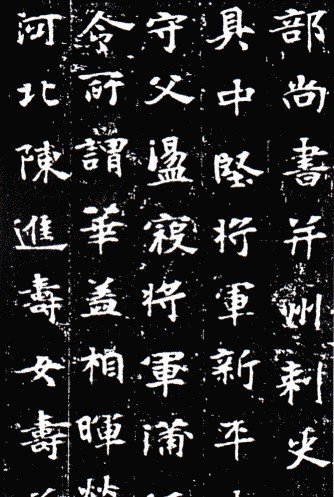 部尚書并州刺史
具中堅将軍新平
守父盪寇将軍蒲
令所謂華蓋相暉
河北陳進壽女壽